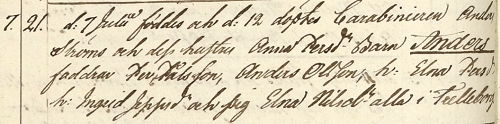 7. 21. d: 7 Julii föddes och d: 12 döptes Carabinieren Anders
Ströms och dess hustrus Anna Persdr Barn Anders
faddrar Per Pålsson, Anders Olsson, h: Elna Persdr
h: Ingrid Jeppsdr och pig Elna Nilsdr alla i Trelleborg